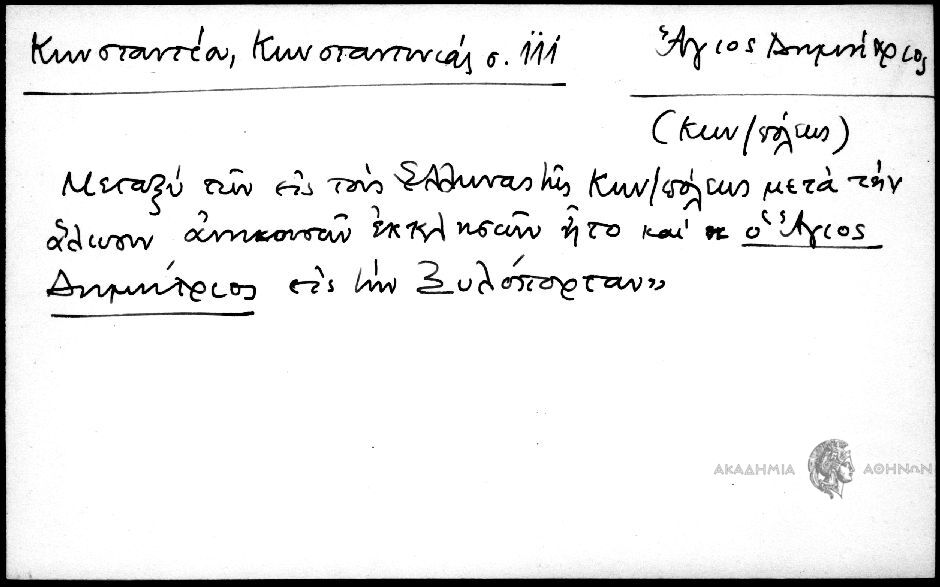 Κωνσταντία, Κωνσταντινιάς σ. 111
Ἅγιος Δημήτριος
(Κων/πόλεως)
Μεταξύ τῶν εἰς τούς Ἕλληνας τῆς Κων/πόλεως μετά τήν
ἅλωσιν ἀνηκουσῶν ἐκκλησιῶν ἦτο καί ὁ Ἅγιος
Δημήτριος εἰς τήν Ξυλόπορταν»
ΑΚΑΔΗΜΙΑ ΑΘΗΝΩΝ